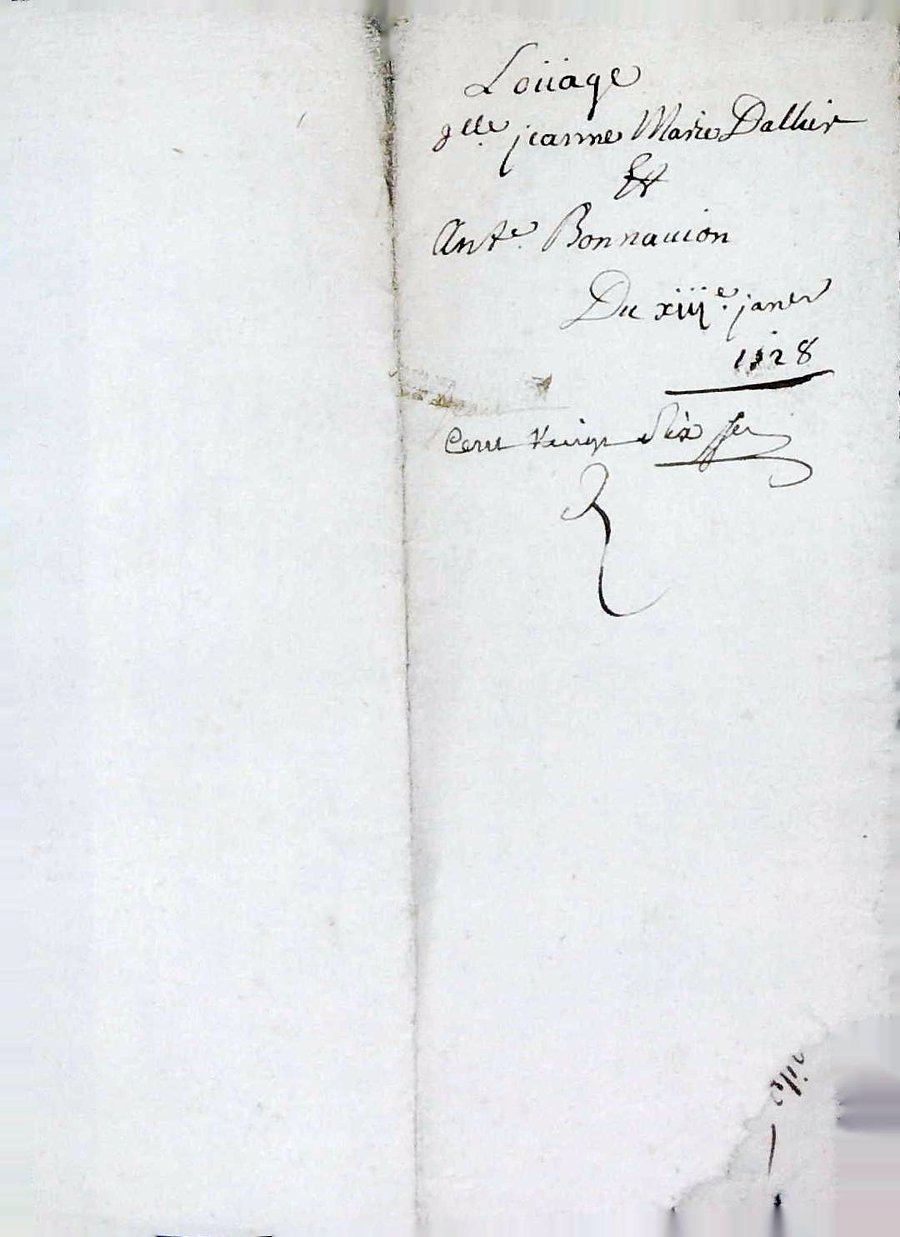 Loüage
dlle. jeanne Marie Dallier
Et
Ante. Bonnauion
Du xiiie. janer
1728
Cent Vingt Six